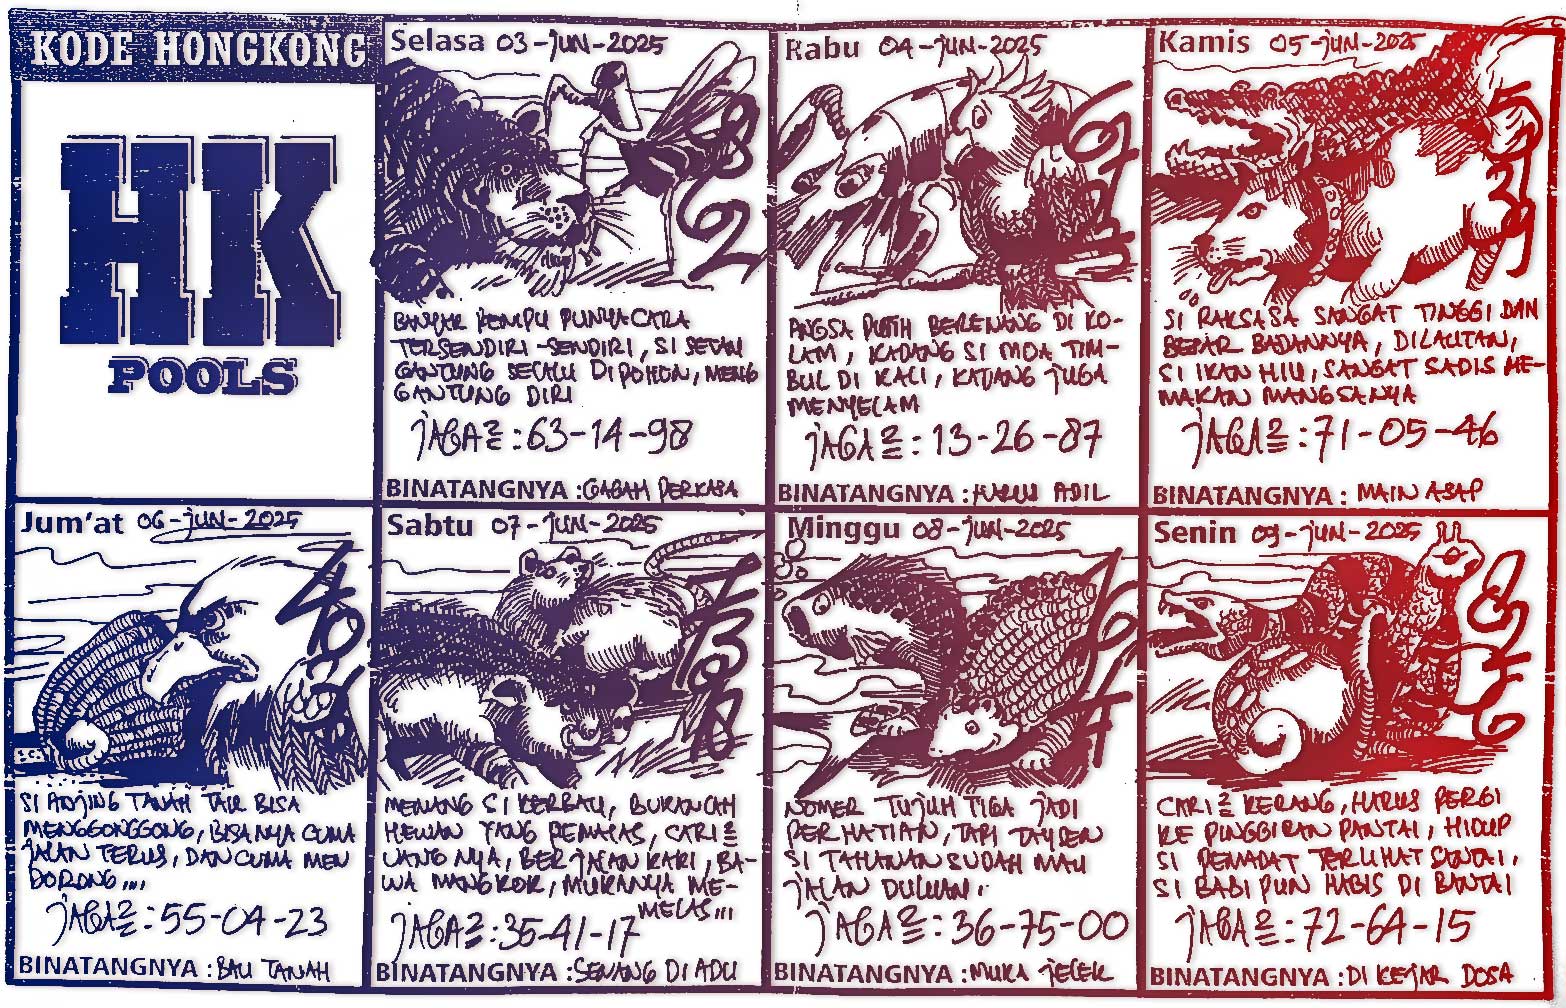 KODE HONGKONG
HK
POOLS
Selasa 03-JUN-2025
8
62
BANYAK PEMPU PUNYA CARA
TERSENDIRI-SENDIRI, SI SETAN
GANTUNG SELALU DIPOHON, MENG
GANTUNG DIRI
JAGA2 : 63-14-98
BINATANGNYA : GAGAH PERKASA
Rabu 04-JUN-2025
ANGSA PUTIH BERENANG DI KO-
LAM, KADANG SI MOA TIM-
BUL DI KALI, KADANG JUGA
MENYELAM
JAGA2 : 13-26-87
BINATANGNYA : HARUS ADIL
Kamis 05-JUN-2025
5
39
SI RAKSASA SANGAT TINGGI DAN
BESAR BADANNYA, DILAUTAN,
SI IKAN HIU, SANGAT SADIS ME-
MAKAN MANGSANYA
JAGA2 : 71-05-46
BINATANGNYA : MAIN ASAP
Jum'at 06-JUN-2025
SI ANJING TANAH TAK BISA
MENGGONGGONG, BISANYA CUMA
JALAN TERUS, DAN CUMA MEN
DORONG...
JAGA2 : 55-04-23
BINATANGNYA : BAU TANAH
Sabtu 07-JUN-2025
MENANG SI KERBAU, BUKANLAH
HEWAN YANG PEMALAS, CARI2
UANG NYA, BERJALAN KAKI, BA-
WA MANGKOK, MUKANYA ME-
MELAS...
JAGA2 : 35-41-17
BINATANGNYA : SENANG DI ADU
Minggu 08-JUN-2025
NOMER TUJUH TIGA JADI
PERHATIAN, TAPI TAYSEN
SI TAHANAN SUDAH MAU
JALAN DULUAN.
JAGA2 : 36-75-00
BINATANGNYA : MUKA JELEK
Senin 09-JUN-2025
CARI2 KERANG, HARUS PERGI
KE PINGGIRAN PANTAI, HIDUP
SI PEMADAT TERLIHAT SANTAI,
SI BABI PUN HABIS DI BANTAI
JAGA2 : 72-64-15
BINATANGNYA : DI KEJAR DOSA